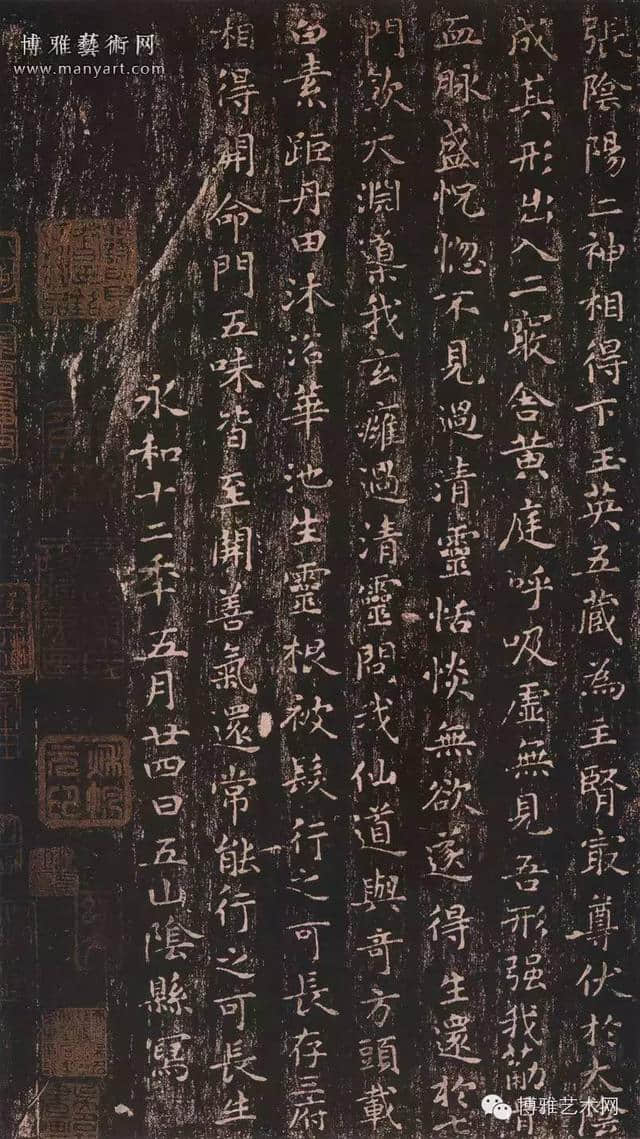 博雅藝術网
www.manyart.com
張陰陽二神相得下玉英五藏為主腎最尊伏於大陰
成其形出入二竅舍黄庭呼吸虛無見吾形强我筋骨
血脉盛怳惚不見過清靈恬惔無欲遂得生還於七
門飲大淵導我玄癰過清靈問我仙道與奇方頭載
白素距丹田沐浴華池生靈根被髮行之可長存三府
相得開命門五味皆至開善氣還常能行之可長生
永和十二年五月廿四日五山陰縣寫
博雅艺术网